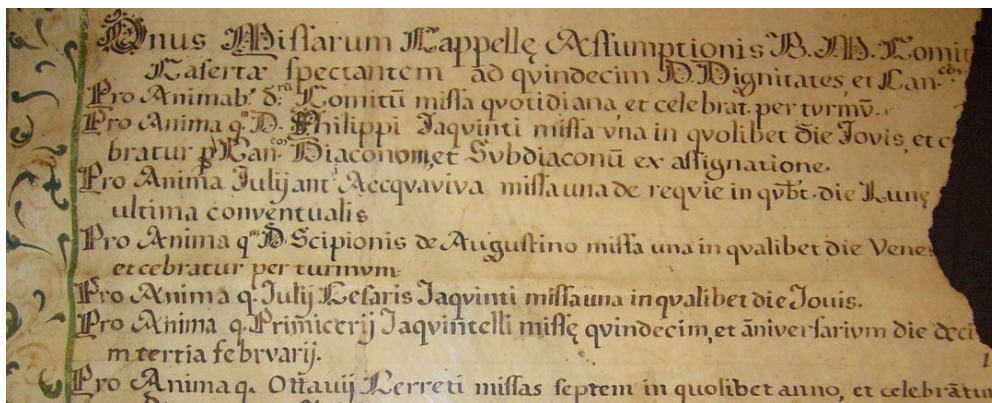 Onus Missarum Cappellę Assumptionis B. M. Comit
Casertæ spectantem ad qvindecim D. Dignitates, et Can.cos
Pro Animab. d.rũ Comitũ missa qvotidiana, et celebrat. per tvrmũ.
Pro Anima q.m D. Philippi Jaqvinti missa vna in qvolibet die Jovis, et c
bratur p Can.cos Diaconom, et Svbdiaconũ ex assignatione.
Pro Anima Julij ant. Accqvaviva missa una de reqvie in qvbt. die Lunę
ultima conventualis
Pro Anima q.m D. Scipionis de Augustino missa una in qvalibet die Vene
et cebratur per turmvm.
Pro Anima q. Julij Cesaris Jaqvinti missa una in qvalibet die Jouis.
Pro Anima q. Primicerij Jaqvintelli missę qvindecim, et ãniversarivm die deci
m tertia febrvarij.
Pro Anima q. Ottavij Cerreti missas septem in quolibet anno, et celebrãtur